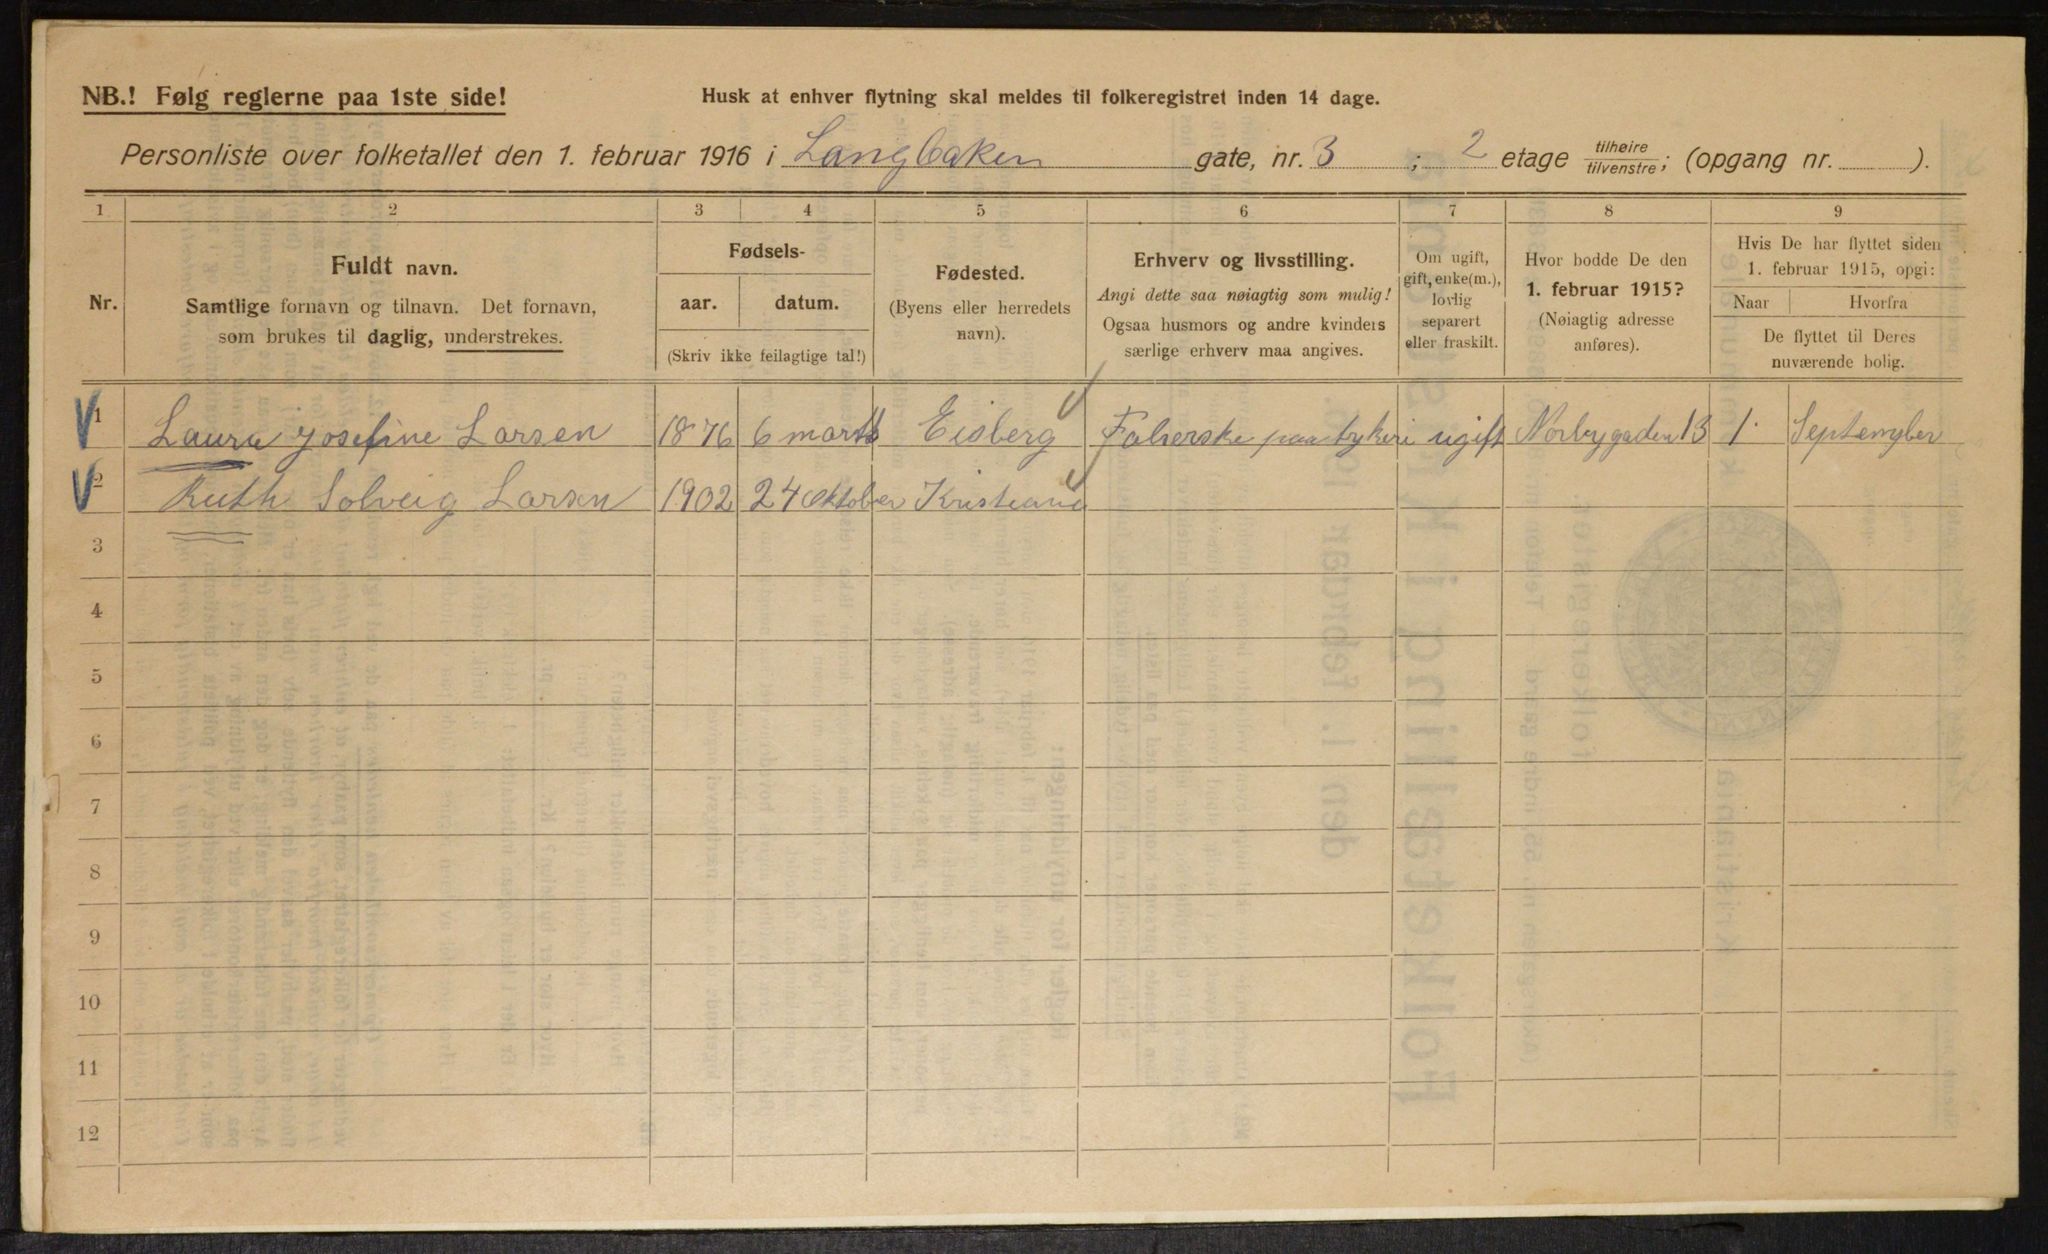 NB.! Følg reglerne paa 1ste side!
Husk at enhver flytning skal meldes til folkeregistret inden 14 dage.
Personliste over folketallet den 1. februar 1916 i Langbaken gate, nr. 3 ; 2 etage tilhøire/tilvenstre; (opgang nr. ).
1 2 3 4 5 6 7 8 9
Nr.
Fuldt navn.
Samtlige fornavn og tilnavn. Det fornavn,
som brukes til daglig, understrekes.
Fødsels-
aar. datum.
(Skriv ikke feilagtige tal!)
Fødested.
(Byens eller herredets
navn).
Erhverv og livsstilling.
Angi dette saa nøiagtig som mulig!
Ogsaa husmors og andre kvinders
særlige erhverv maa angives.
Om ugift,
gift, enke(m.),
lovlig
separert
eller fraskilt.
Hvor bodde De den
1. februar 1915?
(Nøiagtig adresse
anføres).
Hvis De har flyttet siden
1. februar 1915, opgi:
Naar Hvorfra
De flyttet til Deres
nuværende bolig.
1 Laura Josefine Larsen 1876 6 marts Eisberg Falserske paa trykeri ugift Norbygaden 13 1. Septemyber
2 Ruth Solveig Larsen 1902 24 Oktober Kristiania
3
4
5
6
7
8
9
10
11
12